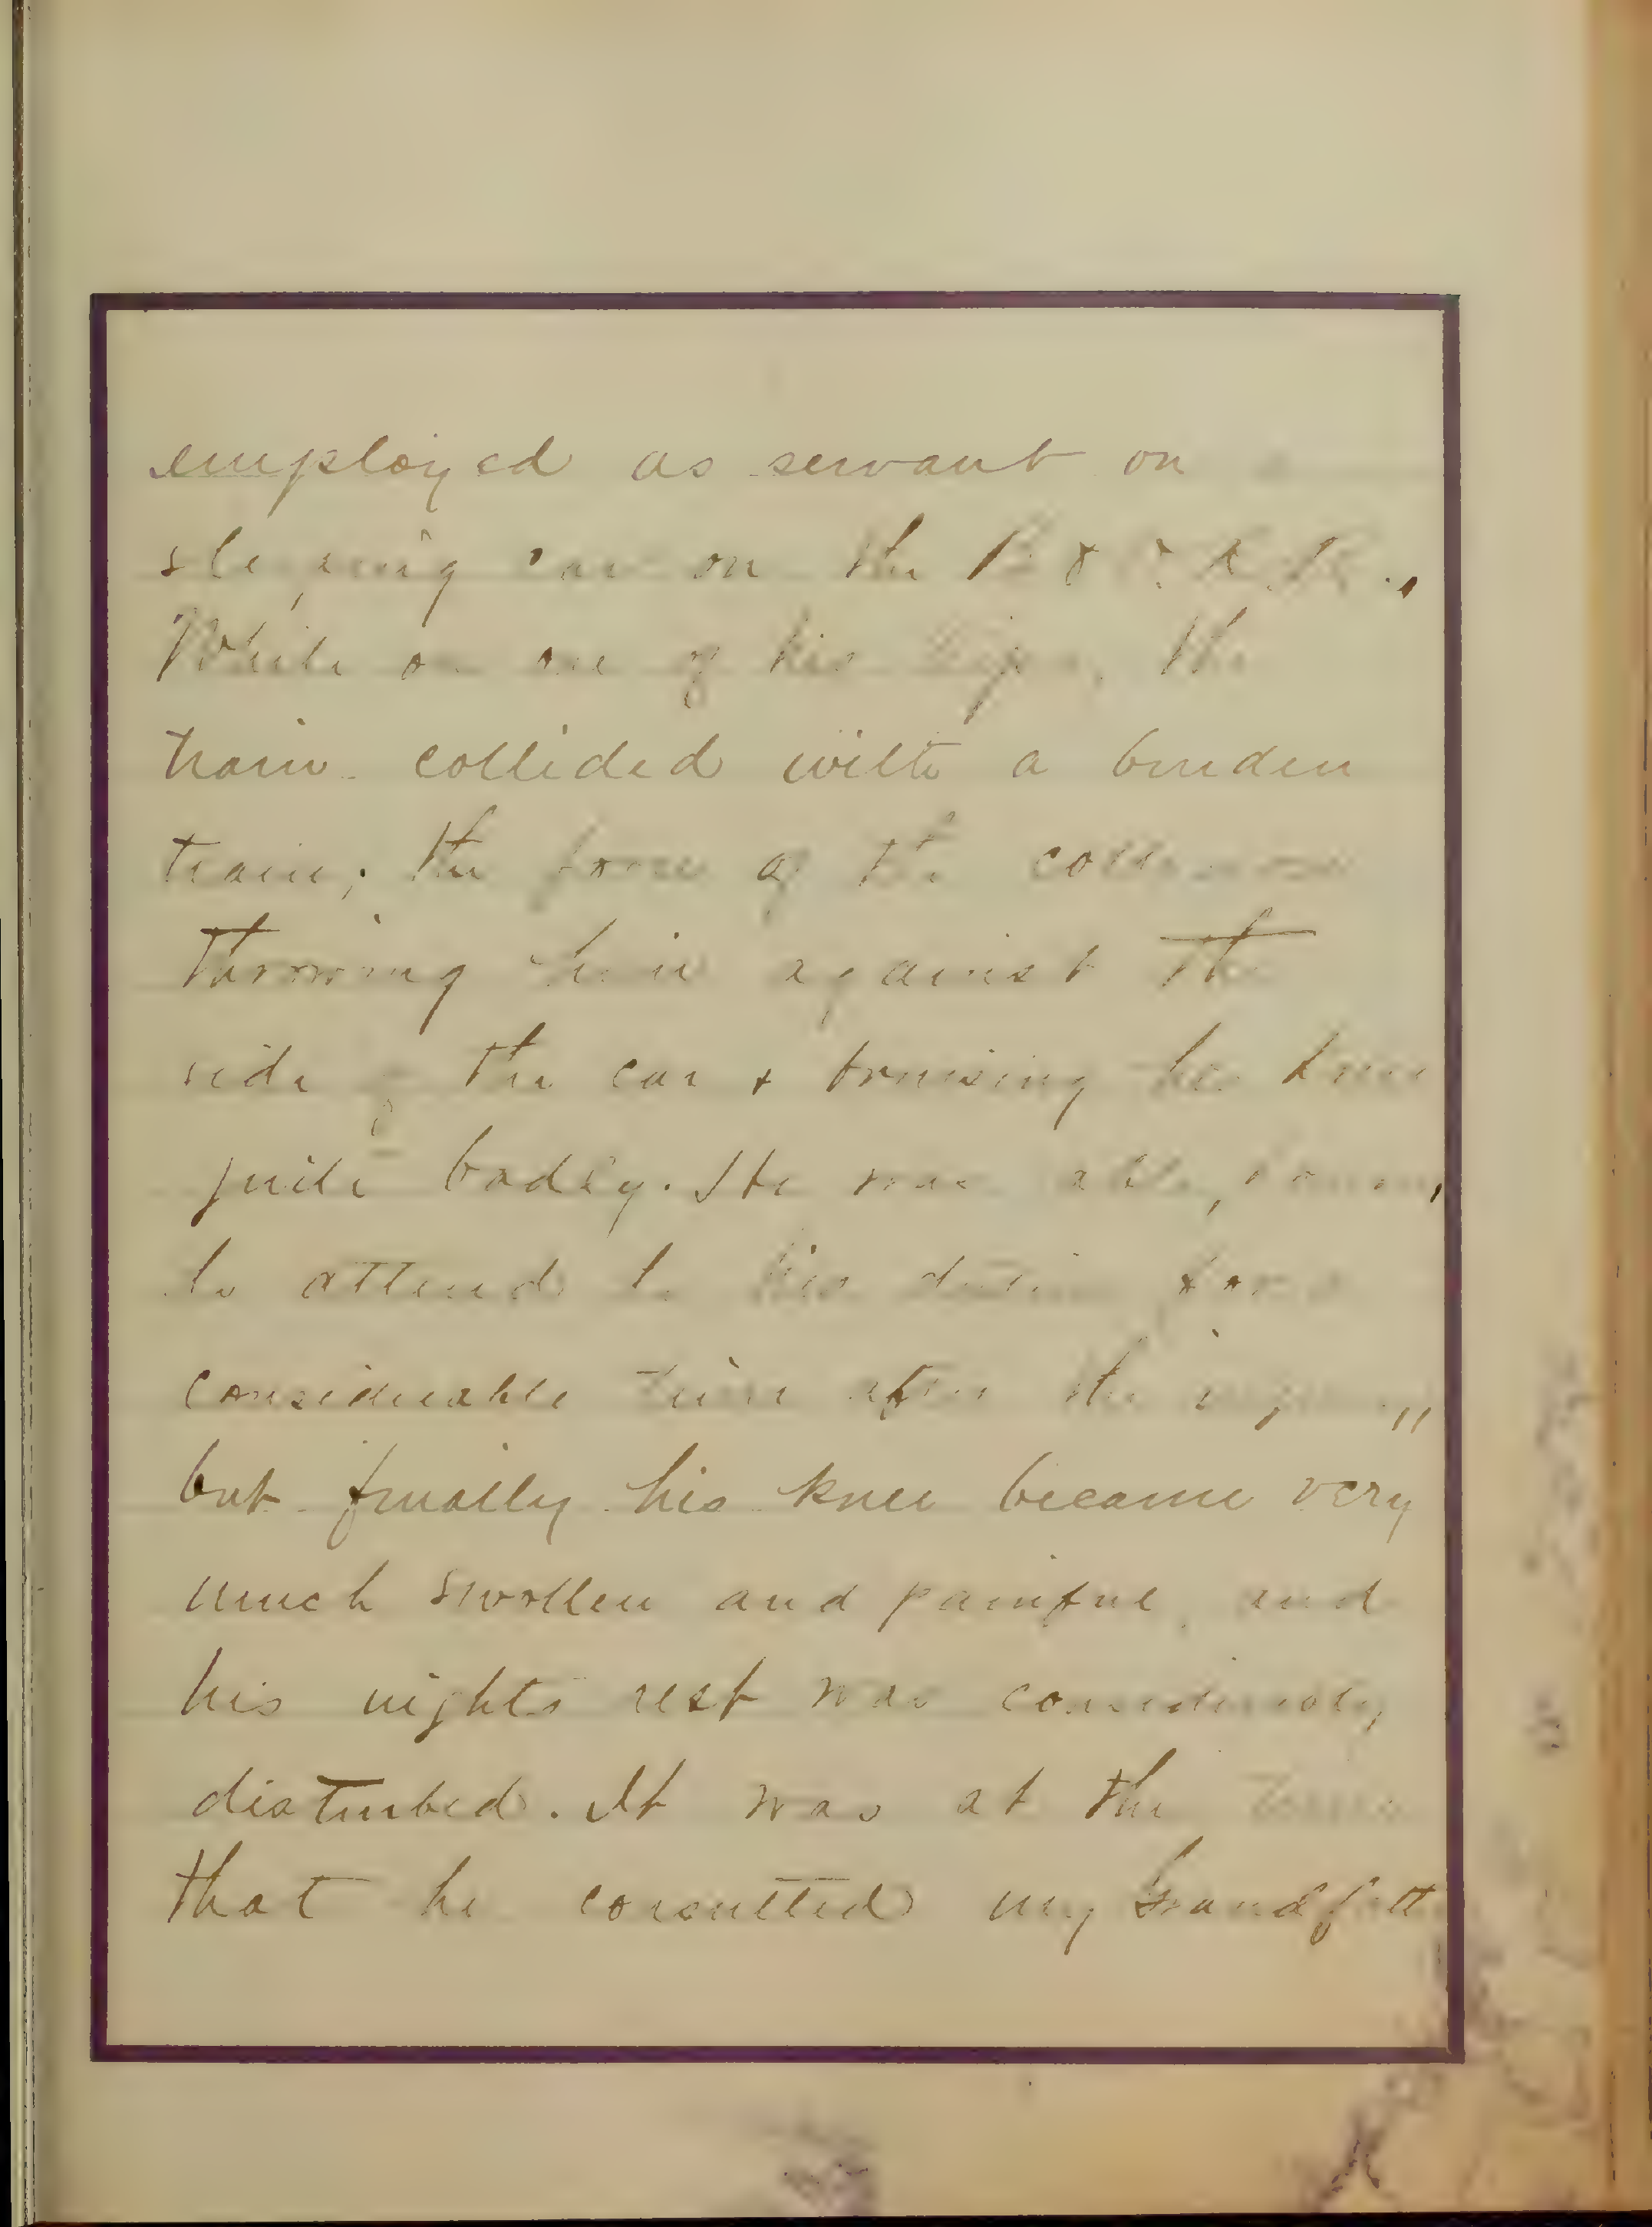 employed as servant on a
sleeping car on the B & O R. R.,
While on one of his trips, the
train collided with a burden
train; the force of the collision
throwing him against the
side of the car & bruising his knee
quite badly. He was able,
to attend to his duties for a
considerable time after the injury,
but finally his knee became very
much swollen and painful, and
his nights rest was considerably
disturbed. It was at the time
that he consulted my Grandfath